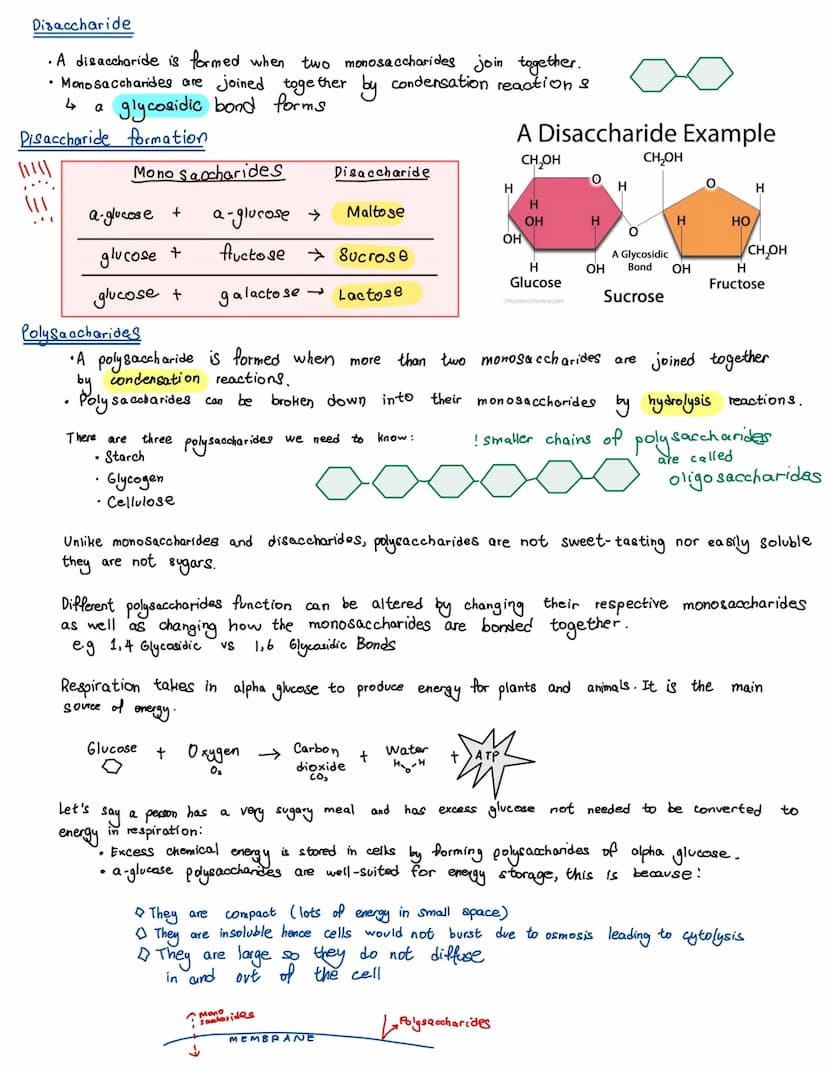 Disaccharide
• A disaccharide is formed when two monosaccharides join together.
• Monosaccharides are joined together by condensation reactions
↳ a glycosidic bond forms
Disaccharide formation
!!!!
!!!
Monosaccharides Disaccharide
α-glucose + α-glucose → Maltose
glucose + fructose → Sucrose
glucose + galactose → Lactose
A Disaccharide Example
CH₂OH CH₂OH
O O
H H H
H
OH H H HO
OH O CH₂OH
A Glycosidic
Bond
H OH OH H
Glucose Fructose
Sucrose
Polysaccharides
• A polysaccharide is formed when more than two monosaccharides are joined together
by condensation reactions.
• Polysaccharides can be broken down into their monosaccharides by hydrolysis reactions.
There are three polysaccharides we need to know:
• Starch
• Glycogen
• Cellulose
! smaller chains of polysaccharides
are called
oligosaccharides
Unlike monosaccharides and disaccharides, polysaccharides are not sweet-tasting nor easily soluble
they are not sugars.
Different polysaccharides function can be altered by changing their respective monosaccharides
as well as changing how the monosaccharides are bonded together.
e.g 1,4 Glycosidic vs 1,6 Glycosidic Bonds
Respiration takes in alpha glucose to produce energy for plants and animals. It is the main
source of energy.
Glucose + Oxygen → Carbon dioxide + Water + ATP
O₂ CO₂ H O H
Let's say a person has a very sugary meal and has excess glucose not needed to be converted to
energy in respiration:
• Excess chemical energy is stored in cells by forming polysaccharides of alpha glucose.
• α-glucose polysaccharides are well-suited for energy storage, this is because:
They are compact (lots of energy in small space)
They are insoluble hence cells would not burst due to osmosis leading to cytolysis
They are large so they do not diffuse
in and out of the cell
Mono
saccharides
Polysaccharides
MEMBRANE